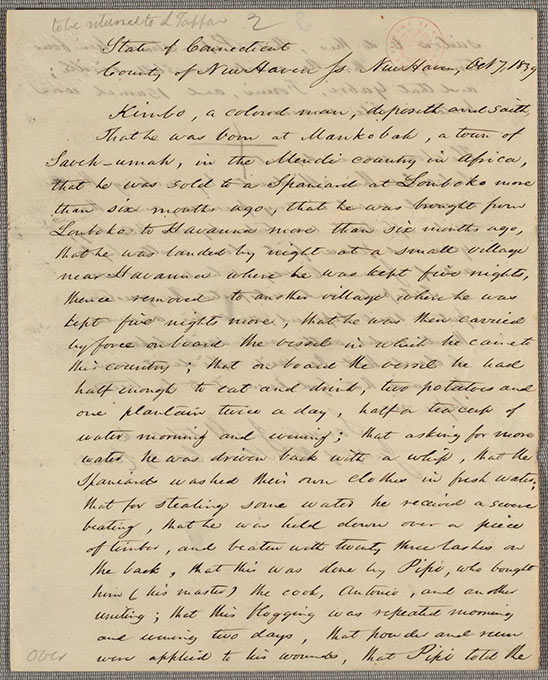 to be returned to L Tappan
2
State of Connecticut
County of New Haven ss. New Haven, Oct 7, 1839
Kimbo, a colored man, deposeth and saith,
that he was born at Mankobah, a town of
Saveh-umah, in the Mendi country in Africa,
that he was sold to a Spaniard at Lomboko more
than six months ago, that he was brought from
Lomboko to Havanna more than six months ago,
that he was landed by night at a small village
near Havanna where he was kept five nights,
thence removed to another village where he was
kept five nights more, that he was then carried
by force on board the vessel in which he came to
this country; that on board the vessel he had
half enough to eat and drink, two potatoes and
one plantain twice a day, half a tea cup of
water morning and evening; that asking for more
water he was driven back with a whip, that the
Spaniards washed their own clothes in fresh water;
that for stealing some water he received a severe
beating, that he was held down over a piece
of timber, and beaten with twenty three lashes on
the back, that this was done by Pipi, who bought
him (his master) the cook, Antonio, and another
uniting; that this flogging was repeated morning
and evening two days, that powder and rum
were applied to his wounds, that Pipi told the
Over